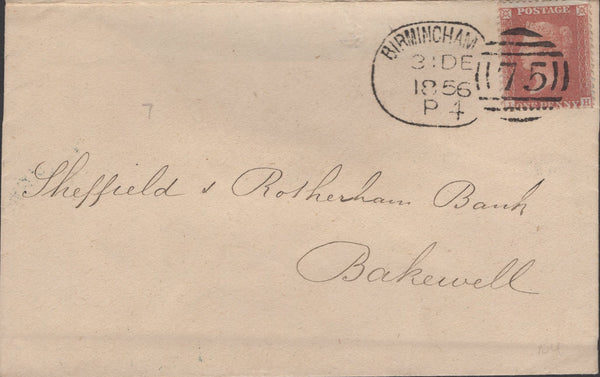 BIRMINGHAM
31DE
1856
P 4
75
POSTAGE
ONE PENNY H
7
Sheffield & Rotherham Bank
Bakewell